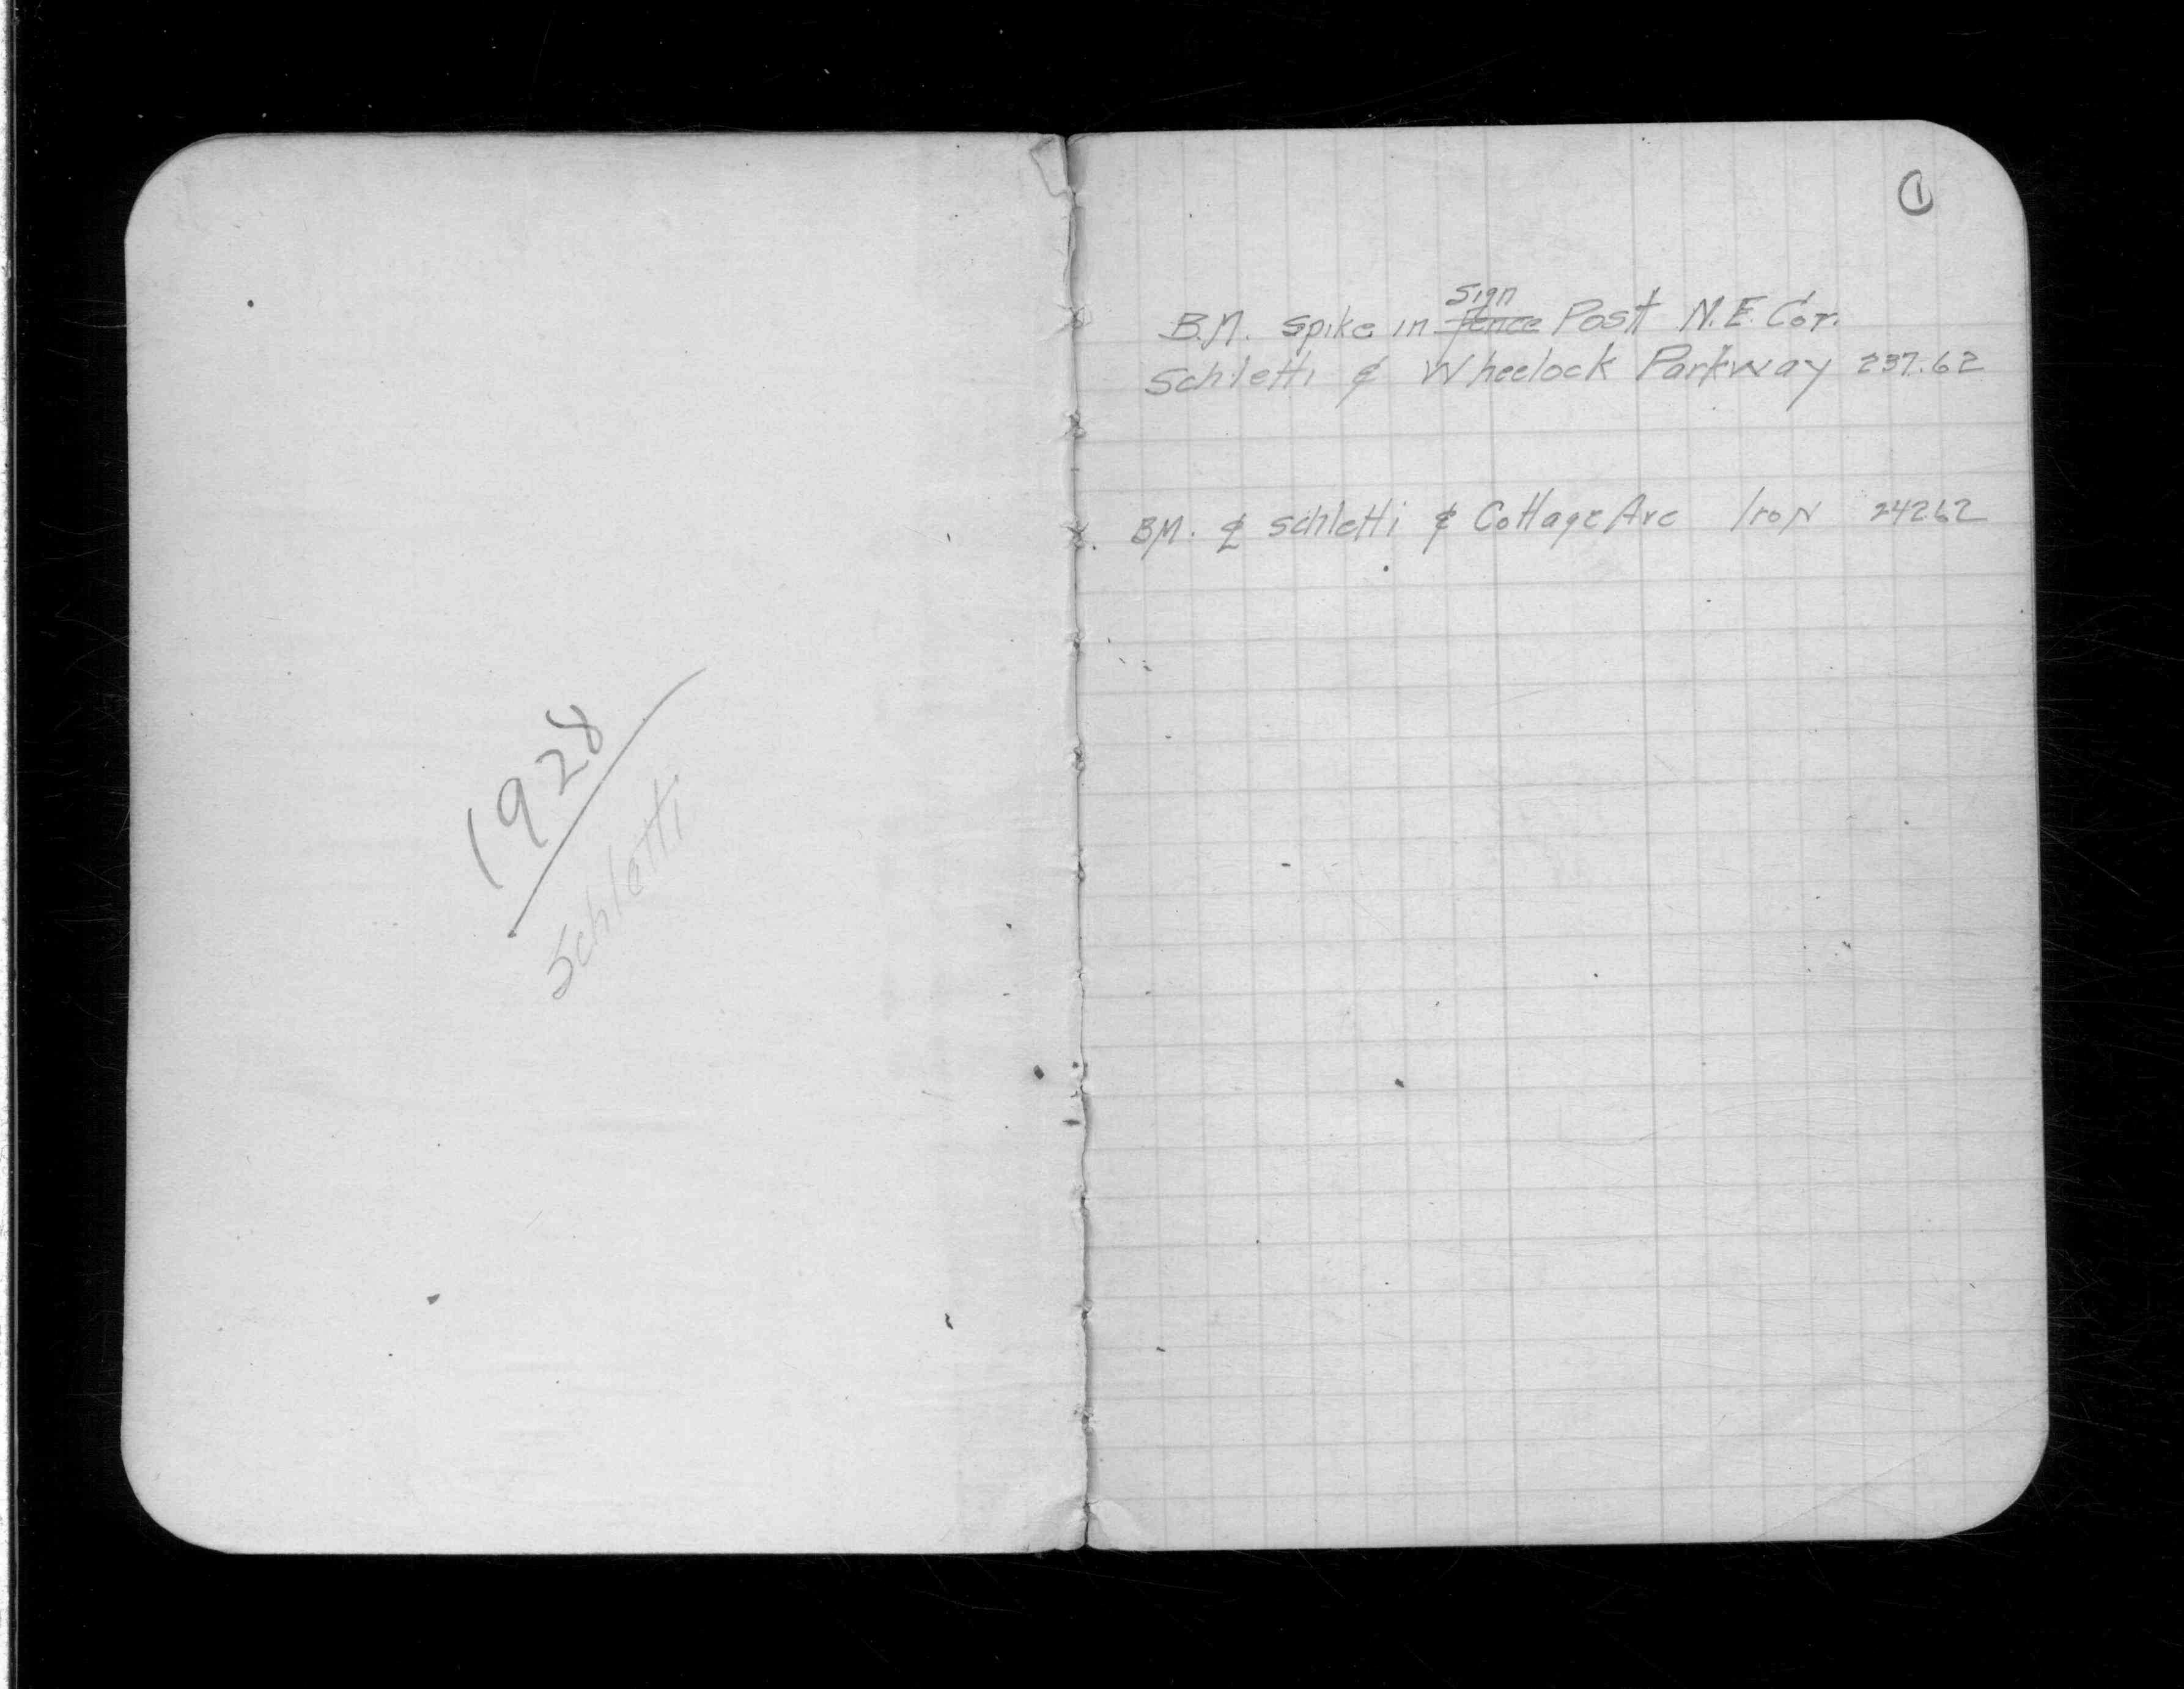 1928
Schletti
1
Sign
B.M. Spike in Fence Post N.E. Cor.
Schletti & Wheelock Parkway 237.62
B.M. ⅊ Schletti & Cottage Ave Iron 242.62